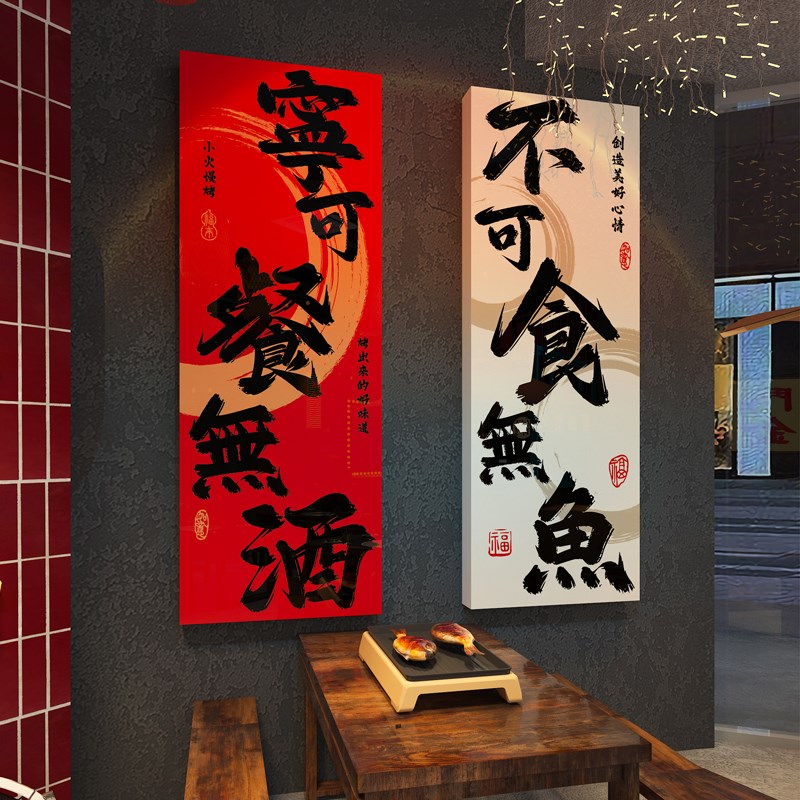 寧可餐無酒
小火慢烤
烤出来的好味道
不可食無魚
创造美好心情
福
福